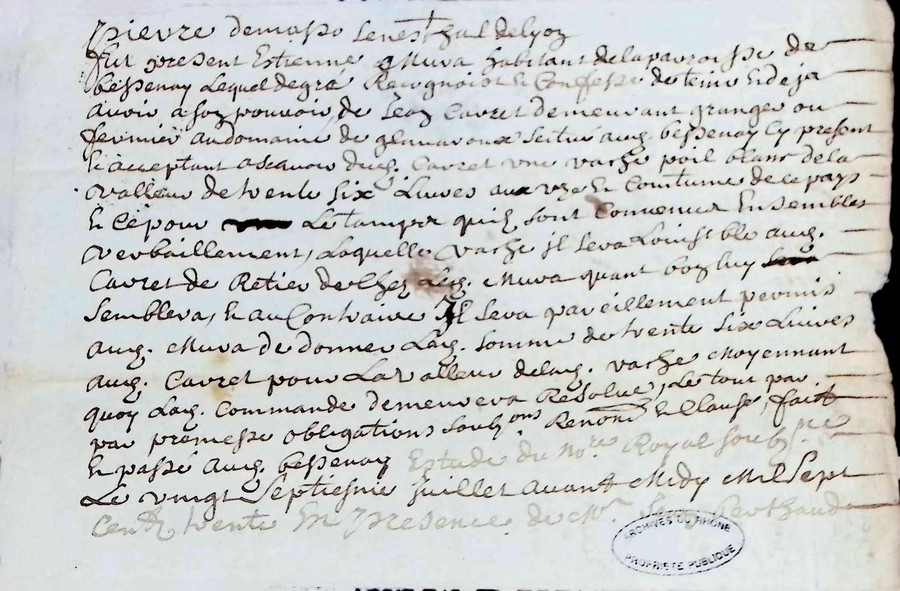 pierre demasso senesChal delyon
fut present Estienne Mura habitant delaparroisse de
bessenay Lequel degré Recognoist et Confesse de tenir Et deja
avoir a son pouvoir, de Jean Carret demeurant granger ou
fermier audomaine de sertué aud. bessenay Cy present
Et acceptant ascavoir dud. Carret une vache poil blanc dela
valleur de trente six Livres aux uze Et Contume decepays
Et Cépour Letamps quilz sont Convenus Ensembles
verballement, Laquelle vache il sera Loisible aud.
Carret de Retirer de Chez Led. Mura quant bon luy
Semblera, Et au Contraire Il Sera pareillement permis
aud. Mura de donner Lad. Somme de trente Six Livres
aud. Carret pour La valleur delad. vache Moyennant
quoy Lad. Commande demeurera Resolue, Le tout par
par promesse obligations soubz.ons Renon.on Et Clause, fait
Et passé aud. bessenay Estude du No.re Royal soub.né
Le vingt Septiesme Juillet avant Midy Mil Sept
Cent trente En presence de Mr. Berthaud
ARCHIVES DU RHÔNE
PROPRIÉTÉ PUBLIQUE